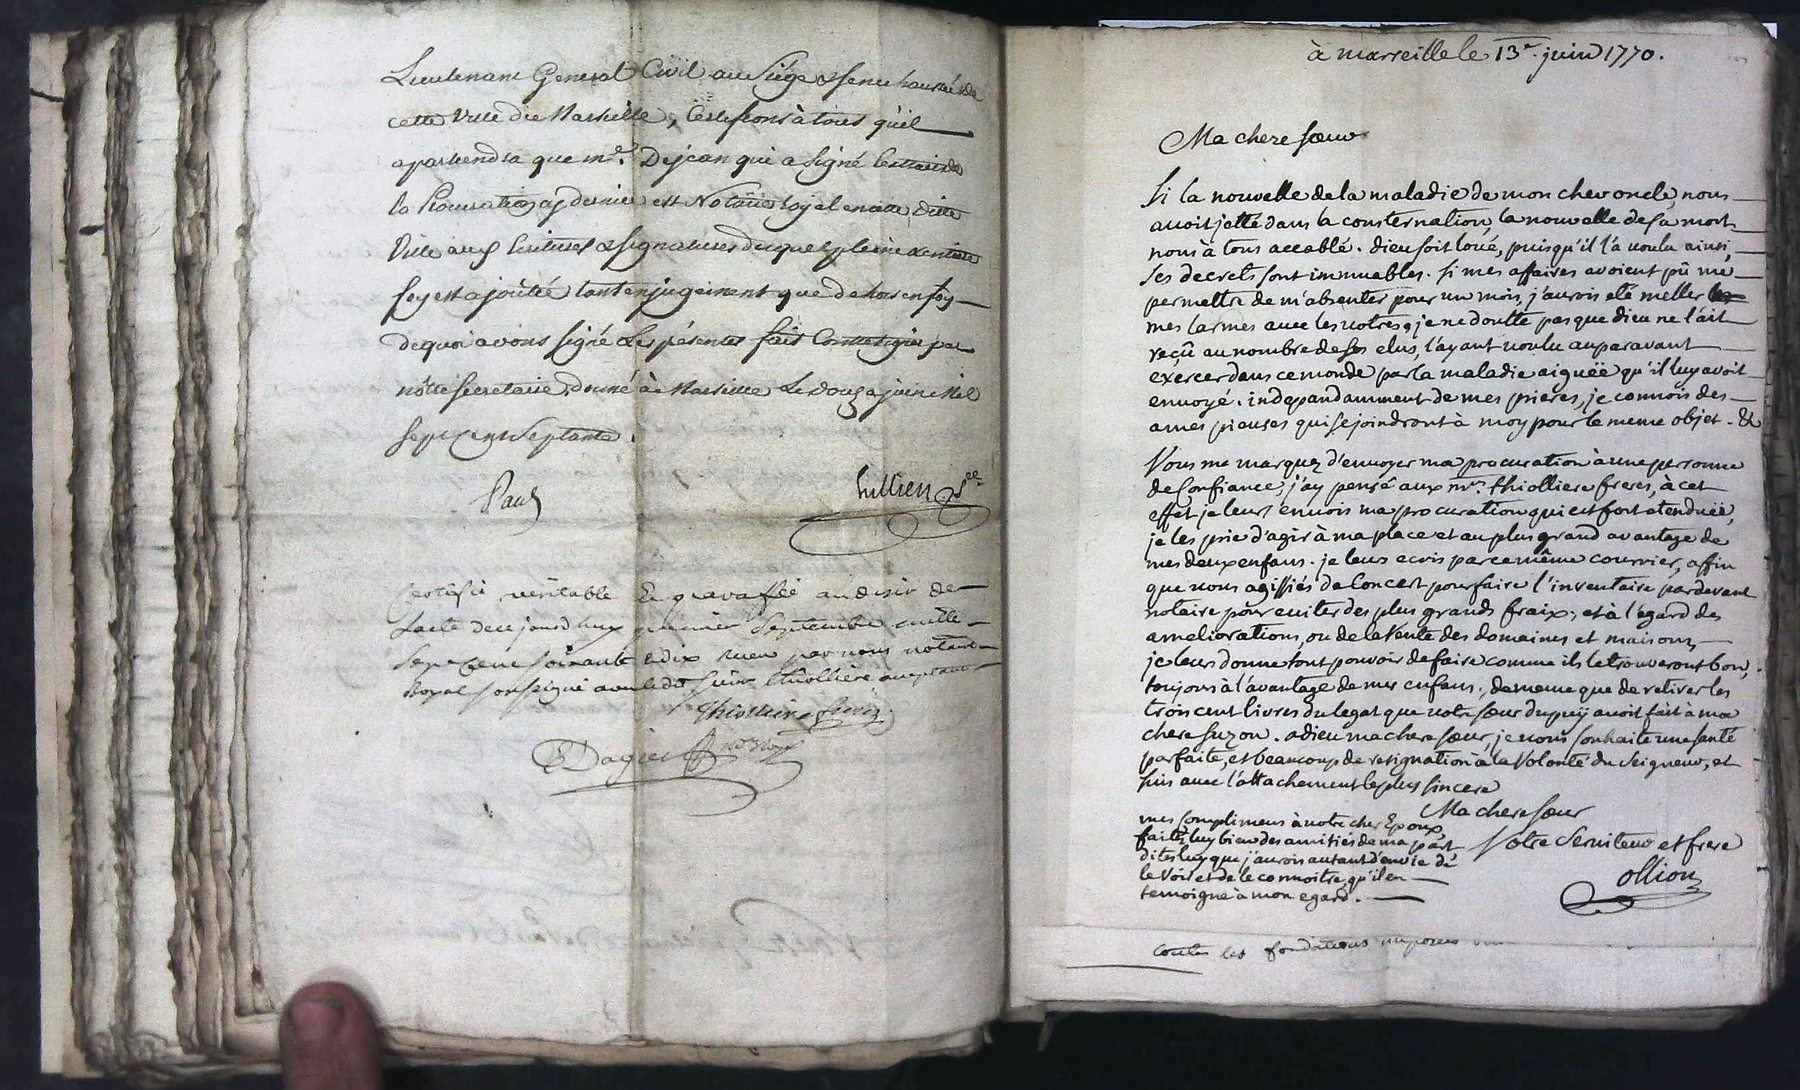 Lieutenant General Civil au Siége & senechaussée de
cette Ville de Marseille, Certifions à tous qu'il
apartiendra que me. Dejean qui a signé l'extrait de
la Procuration cy derniere est Notaire Royal en cette ditte
Ville aux Ecritures & signatures duquel pleine & entiere
foy est ajoûtée tant en jugement que dehors en foy
de quoi avons signé les présentes fait Contresigner par
nôtre Secretaire, donné à Marseille Le Douze juin Mil
sept cent septante.
Paul
Jullien See
Certifié véritable & paraffé au desir de
l'acte de ce jourd'huy premier Septembre mille
sept cent soixante & dix receu par nous notaire
Royal soussigné avec le dit sieur thiolliere
thiolliere
Dagier no. Roy.
à marseille le 13e. juin 1770.
Ma chere sœur
Si la nouvelle de la maladie de mon cher oncle, nous
avoit jetté dans la consternation, la nouvelle de sa mort
nous à tous accablé. dieu soit loué, puisqu'il l'à voulu ainsi,
ses decrets sont immuables. si mes affaires avoient pû me
permettre de m'absenter pour un mois, j'aurois eté meller
mes larmes avec les votres, je ne doutte pas que dieu ne l'ait
reçû au nombre de ses elus, l'ayant voulu auparavant
exercer dans ce monde par la maladie aiguëe qu'il luy avoit
envoyé. indepandamment de mes prieres, je connois des
ames pieuses qui se joindront à moy pour le meme objet. &
Vous me marquez d'envoyer ma procuration à une personne
de Confiance, j'ay pensé aux mrs. thiolliere freres, à cet
effet je leurs envois ma procuration qui est fort etenduëe,
je les prie d'agir à ma place et au plus grand avantage de
mes deux enfans. je leurs ecris par ce même courrier, affin
que vous agissiés de Concert pour faire l'inventaire pardevant
notaire pour eviter des plus grands fraix, et à l'egard des
ameliorations, ou de la Vente des domaines et maisons,
je leurs donne tout pouvoir de faire comme ils le trouveront bon,
toujours à l'avantage de mes enfans. de meme que de retirer les
trois cent livres du legat que notre sœur dupuy avoit fait à ma
chere suzon. adieu ma chere sœur, je vous souhaite une santé
parfaite, et beaucoup de resignation à la Volonté du Seigneur, et
suis avec l'attachement le plus sincere
Ma chere sœur
Votre Serviteur et frere
ollion
mes Complimens à votre cher Epoux,
faites luy bien des amitiés de ma part
dites luy que j'aurois autant d'envie de
le Voir et de le connoitre, qu'il en
temoigne à mon egard.
toutes les fondations